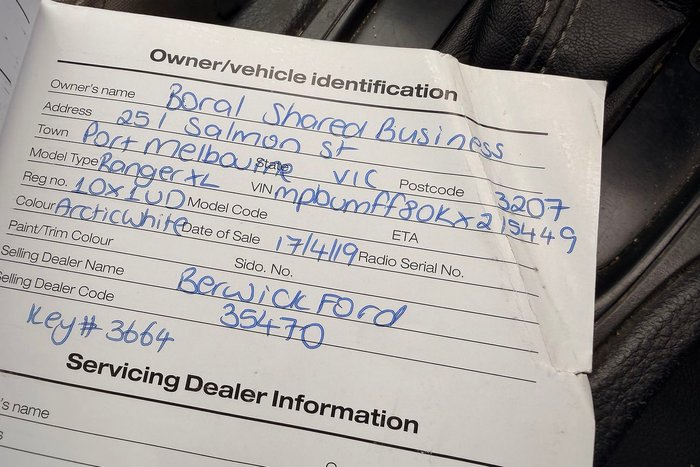 Owner/vehicle identification
Owner's name Boral Shared Business
Address 251 Salmon St
Town Port Melbourne State VIC Postcode 3207
Model Type Ranger XL VIN mpbumff80Kx215449
Reg no. 10x1UD Model Code ETA
Colour Arctic White Date of Sale 17/4/19 Radio Serial No.
Paint/Trim Colour Sido. No.
Selling Dealer Name Berwick Ford
Selling Dealer Code 35470
Key# 3664
Servicing Dealer Information
's name